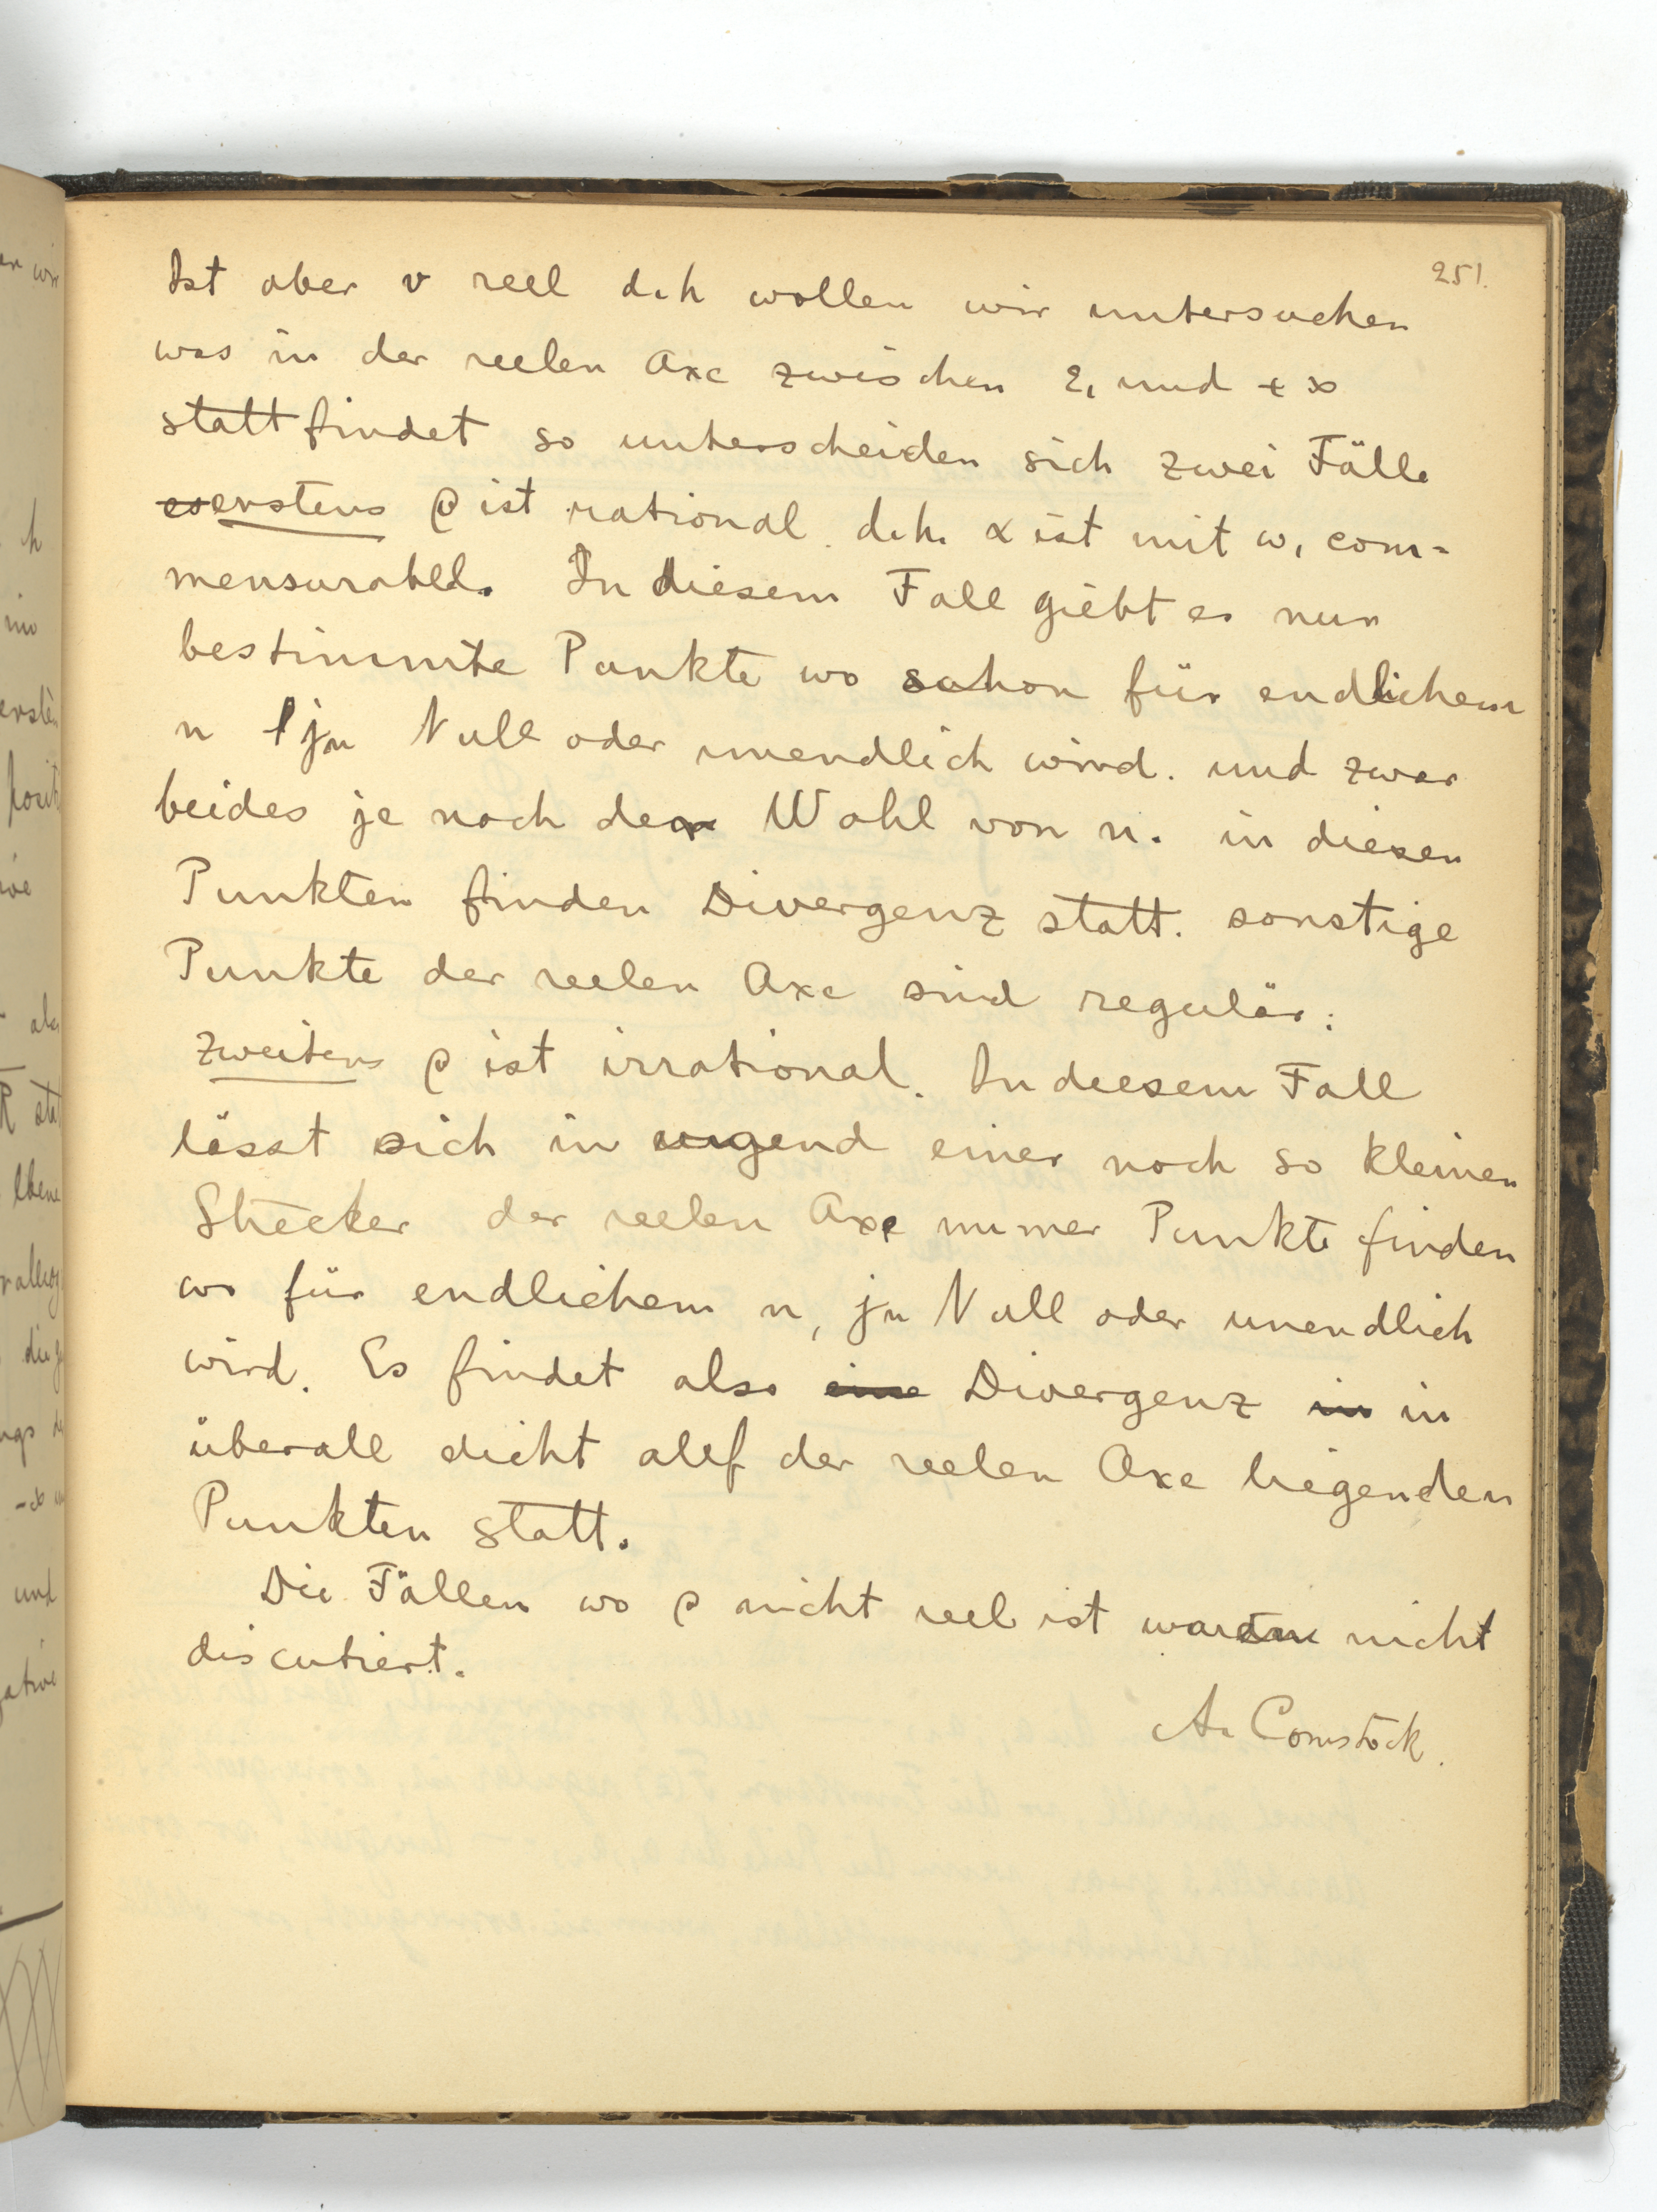 251.
Ist aber v reel d.h. wollen wir untersuchen
was in der reelen Axe zwischen e, und + ∞
stattfindet so unterscheiden sich zwei Fälle
erstens ρ ist rational. d.h. α ist mit ω, com-
mensurabel. In diesem Fall giebt es nun
bestimmte Punkte wo schon für endlichem
n jn Null oder unendlich wird. und zwar
beides je nach der Wahl von n. in diesen
Punkten finden Divergenz statt. sonstige
Punkte der reelen Axe sind regulär.
Zweitens ρ ist irrational. In diesem Fall
lässt sich in irgend einer noch so kleinen
Strecker der reelen Axe immer Punkte finden
wo für endlichem n, jn Null oder unendlich
wird. Es findet also Divergenz in
überall dicht auf der reelen Axe liegenden
Punkten statt.
Die Fällen wo ρ nicht reel ist waren nicht
discutiert.
A. Comstock.